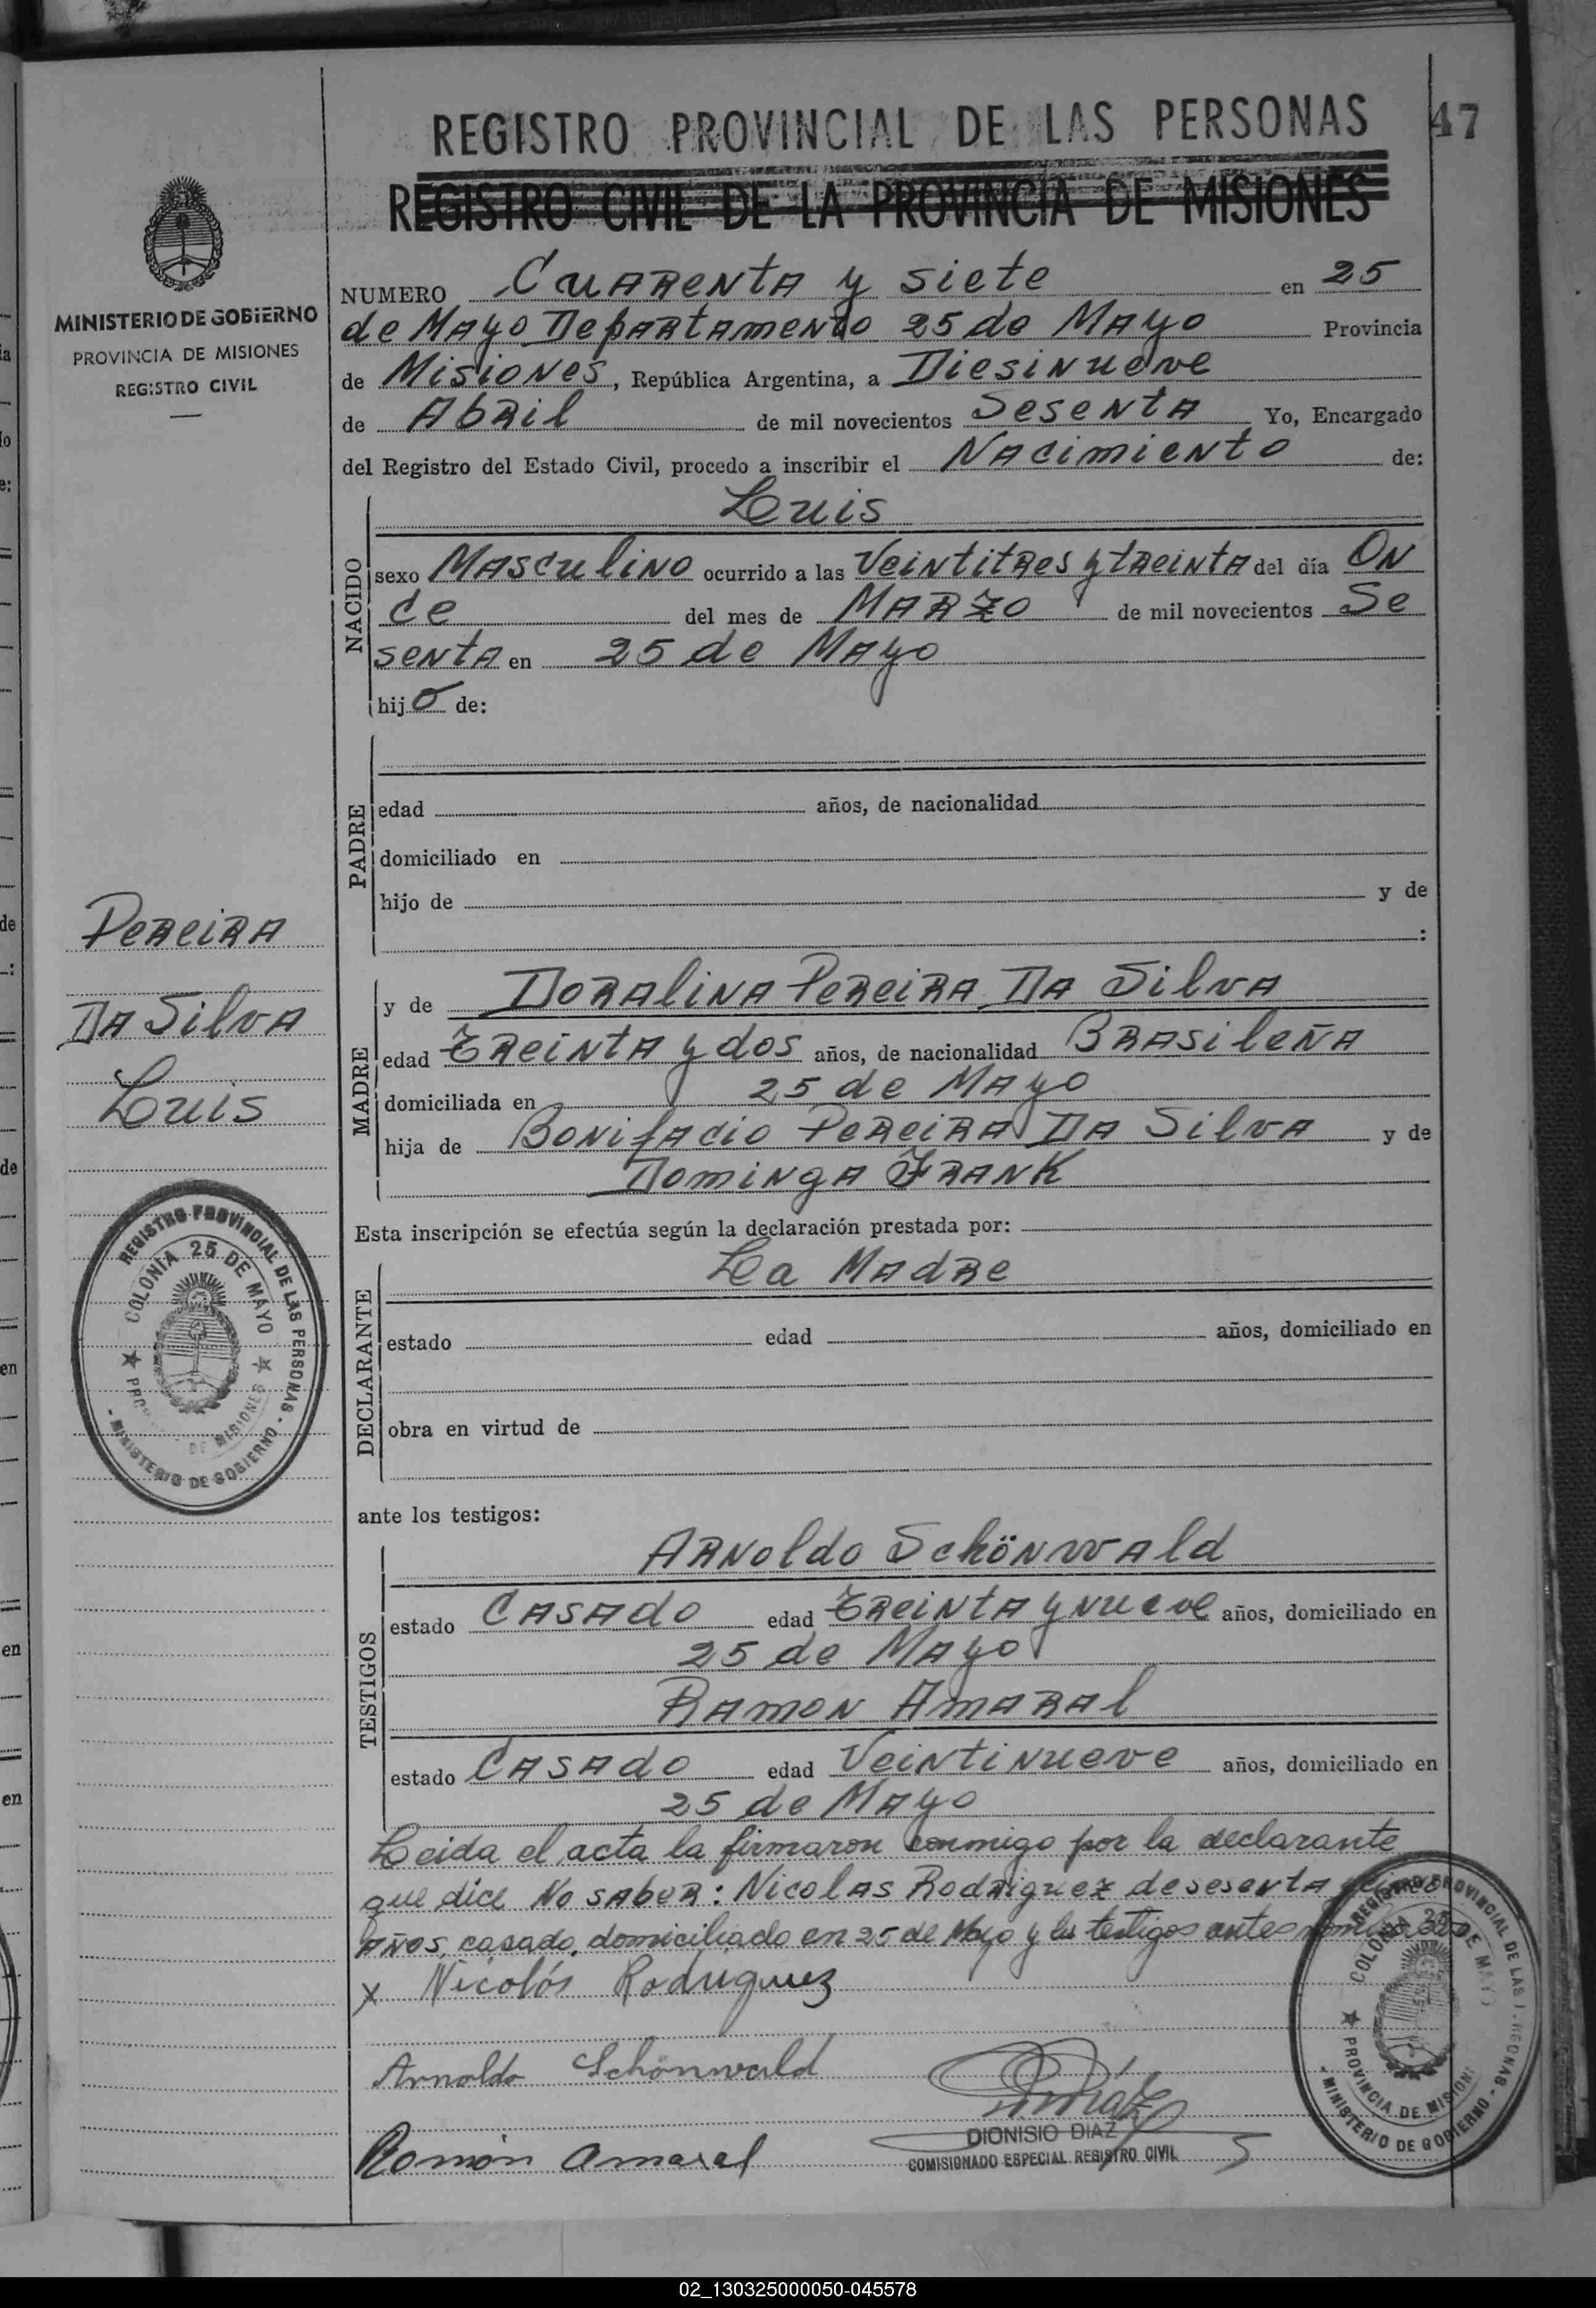 REGISTRO PROVINCIAL DE LAS PERSONAS
47
REGISTRO CIVIL DE LA PROVINCIA DE MISIONES
MINISTERIO DE GOBIERNO
PROVINCIA DE MISIONES
REGISTRO CIVIL
NUMERO Cuarenta y siete en 25
de Mayo Departamento 25 de Mayo Provincia
de Misiones, República Argentina, a Diesinueve
de Abril de mil novecientos Sesenta Yo, Encargado
del Registro del Estado Civil, procedo a inscribir el Nacimiento de:
NACIDO
Luis
sexo Masculino ocurrido a las Veintitres y treinta del día On
ce del mes de Marzo de mil novecientos Se
senta en 25 de Mayo
hijo de:
PADRE
edad años, de nacionalidad
domiciliado en
hijo de y de
:
Pereira
Da Silva
Luis
MADRE
y de Doralina Pereira Da Silva
edad Treinta y dos años, de nacionalidad Brasileña
domiciliada en 25 de Mayo
hija de Bonifacio Pereira Da Silva y de
Dominga Frank
Esta inscripción se efectúa según la declaración prestada por:
DECLARANTE
La Madre
estado edad años, domiciliado en
obra en virtud de
REGISTRO PROVINCIAL DE LAS PERSONAS
COLONIA 25 DE MAYO
DE MISIONES
- MINISTERIO DE GOBIERNO -
ante los testigos:
TESTIGOS
Arnoldo Schönwald
estado Casado edad Treinta y nueve años, domiciliado en
25 de Mayo
Ramon Amaral
estado Casado edad Veintinueve años, domiciliado en
25 de Mayo
Leida el acta la firmaron conmigo por la declarante
que dice No saber: Nicolas Rodriguez de sesenta y
años, casado, domiciliado en 25 de Mayo y los testigos antes
x Nicolás Rodriguez
Arnoldo Schönwald
Ramón Amaral
DIONISIO DIAZ
COMISIONADO ESPECIAL REGISTRO CIVIL
REGISTRO PROVINCIAL DE LAS
COLONIA 25 DE MAYO
PROVINCIA DE MISIONES
- MINISTERIO DE GOBIERNO -
02_130325000050-045578